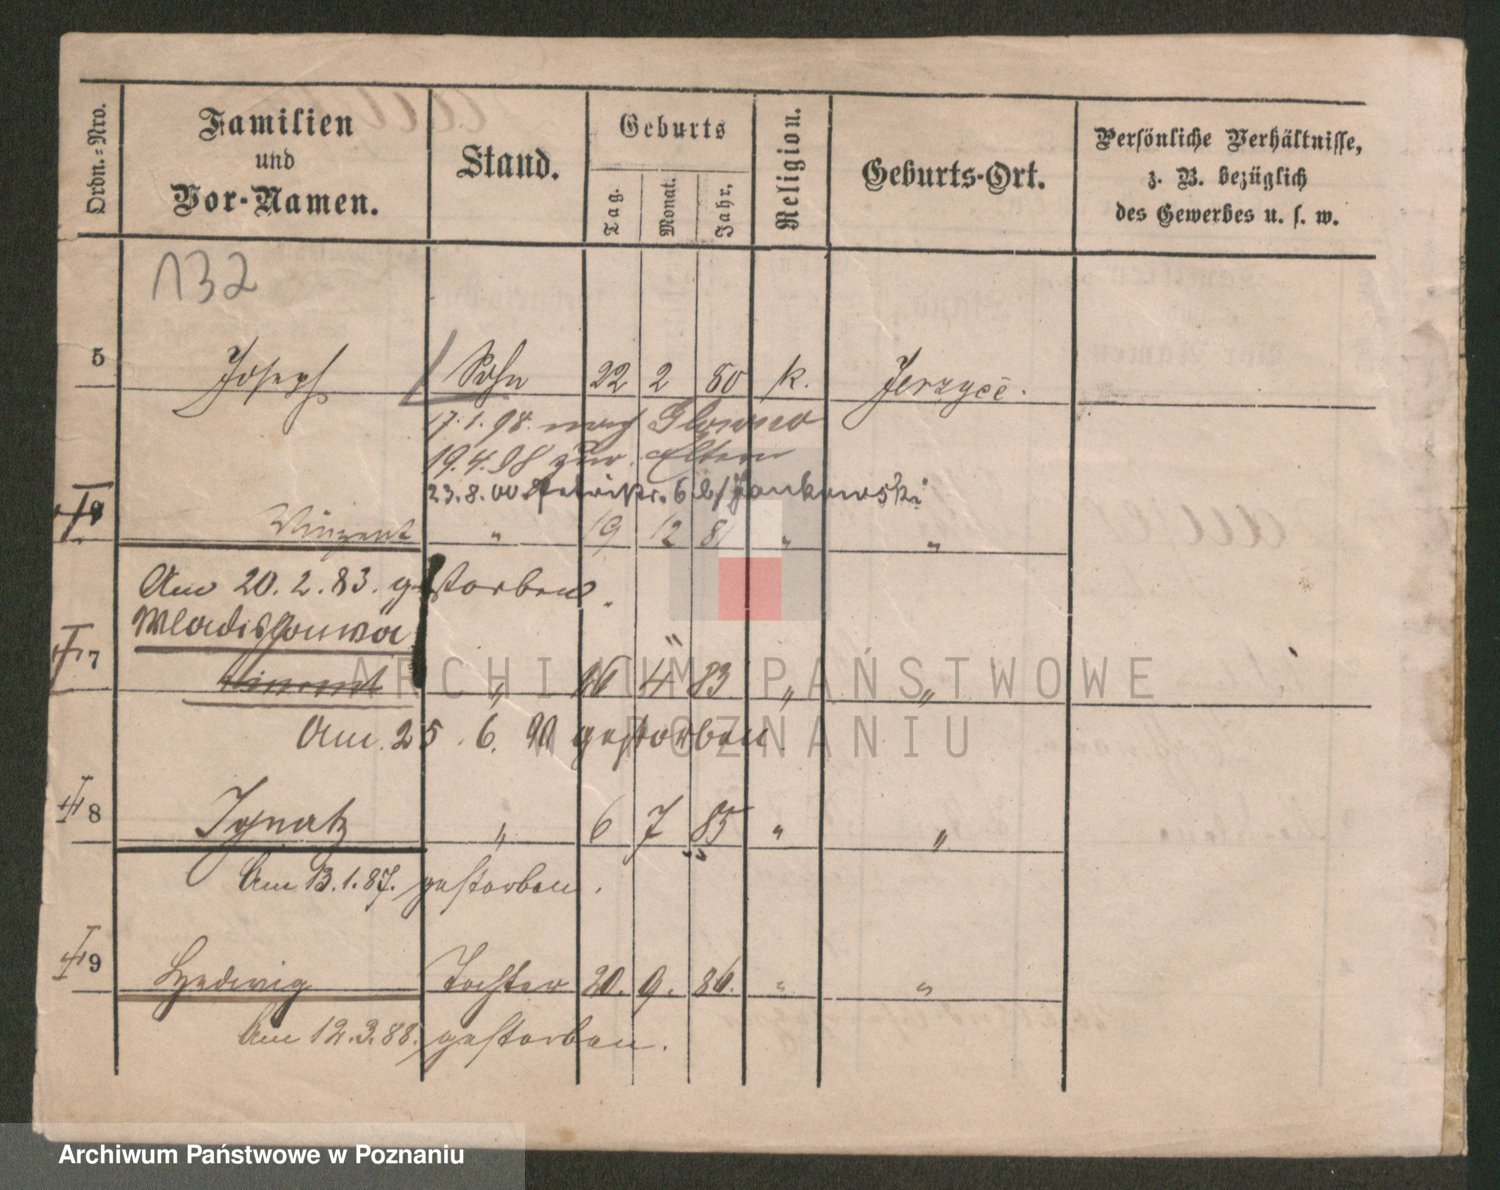 Ordn.-Nro.
Familien
und
Vor-Namen.
Stand.
Geburts
Tag.
Monat.
Jahr.
Religion.
Geburts-Ort.
Persönliche Verhältnisse,
z. B. bezüglich
des Gewerbes u. s. w.
132
5 Joseph Sohn 22 2 80 k. Jerzyce.
17.1.98. nach Glowno
19.4.98 zur. Eltern
23.8.00 6 b/Jankowski
Vinzent " 19 12 81 " "
Am 20.2.83. gestorben.
Wladislauwa
7 Vincent " 16 4 83 " "
Am 25.6.90 gestorben.
8 Ignatz " 6 7 85 " "
Am 13.1.87. gestorben.
9 Hedwig Tochter 20. 9. 86. " "
Am 12.3.88. gestorben.
ARCHIWUM PAŃSTWOWE
W POZNANIU
Archiwum Państwowe w Poznaniu